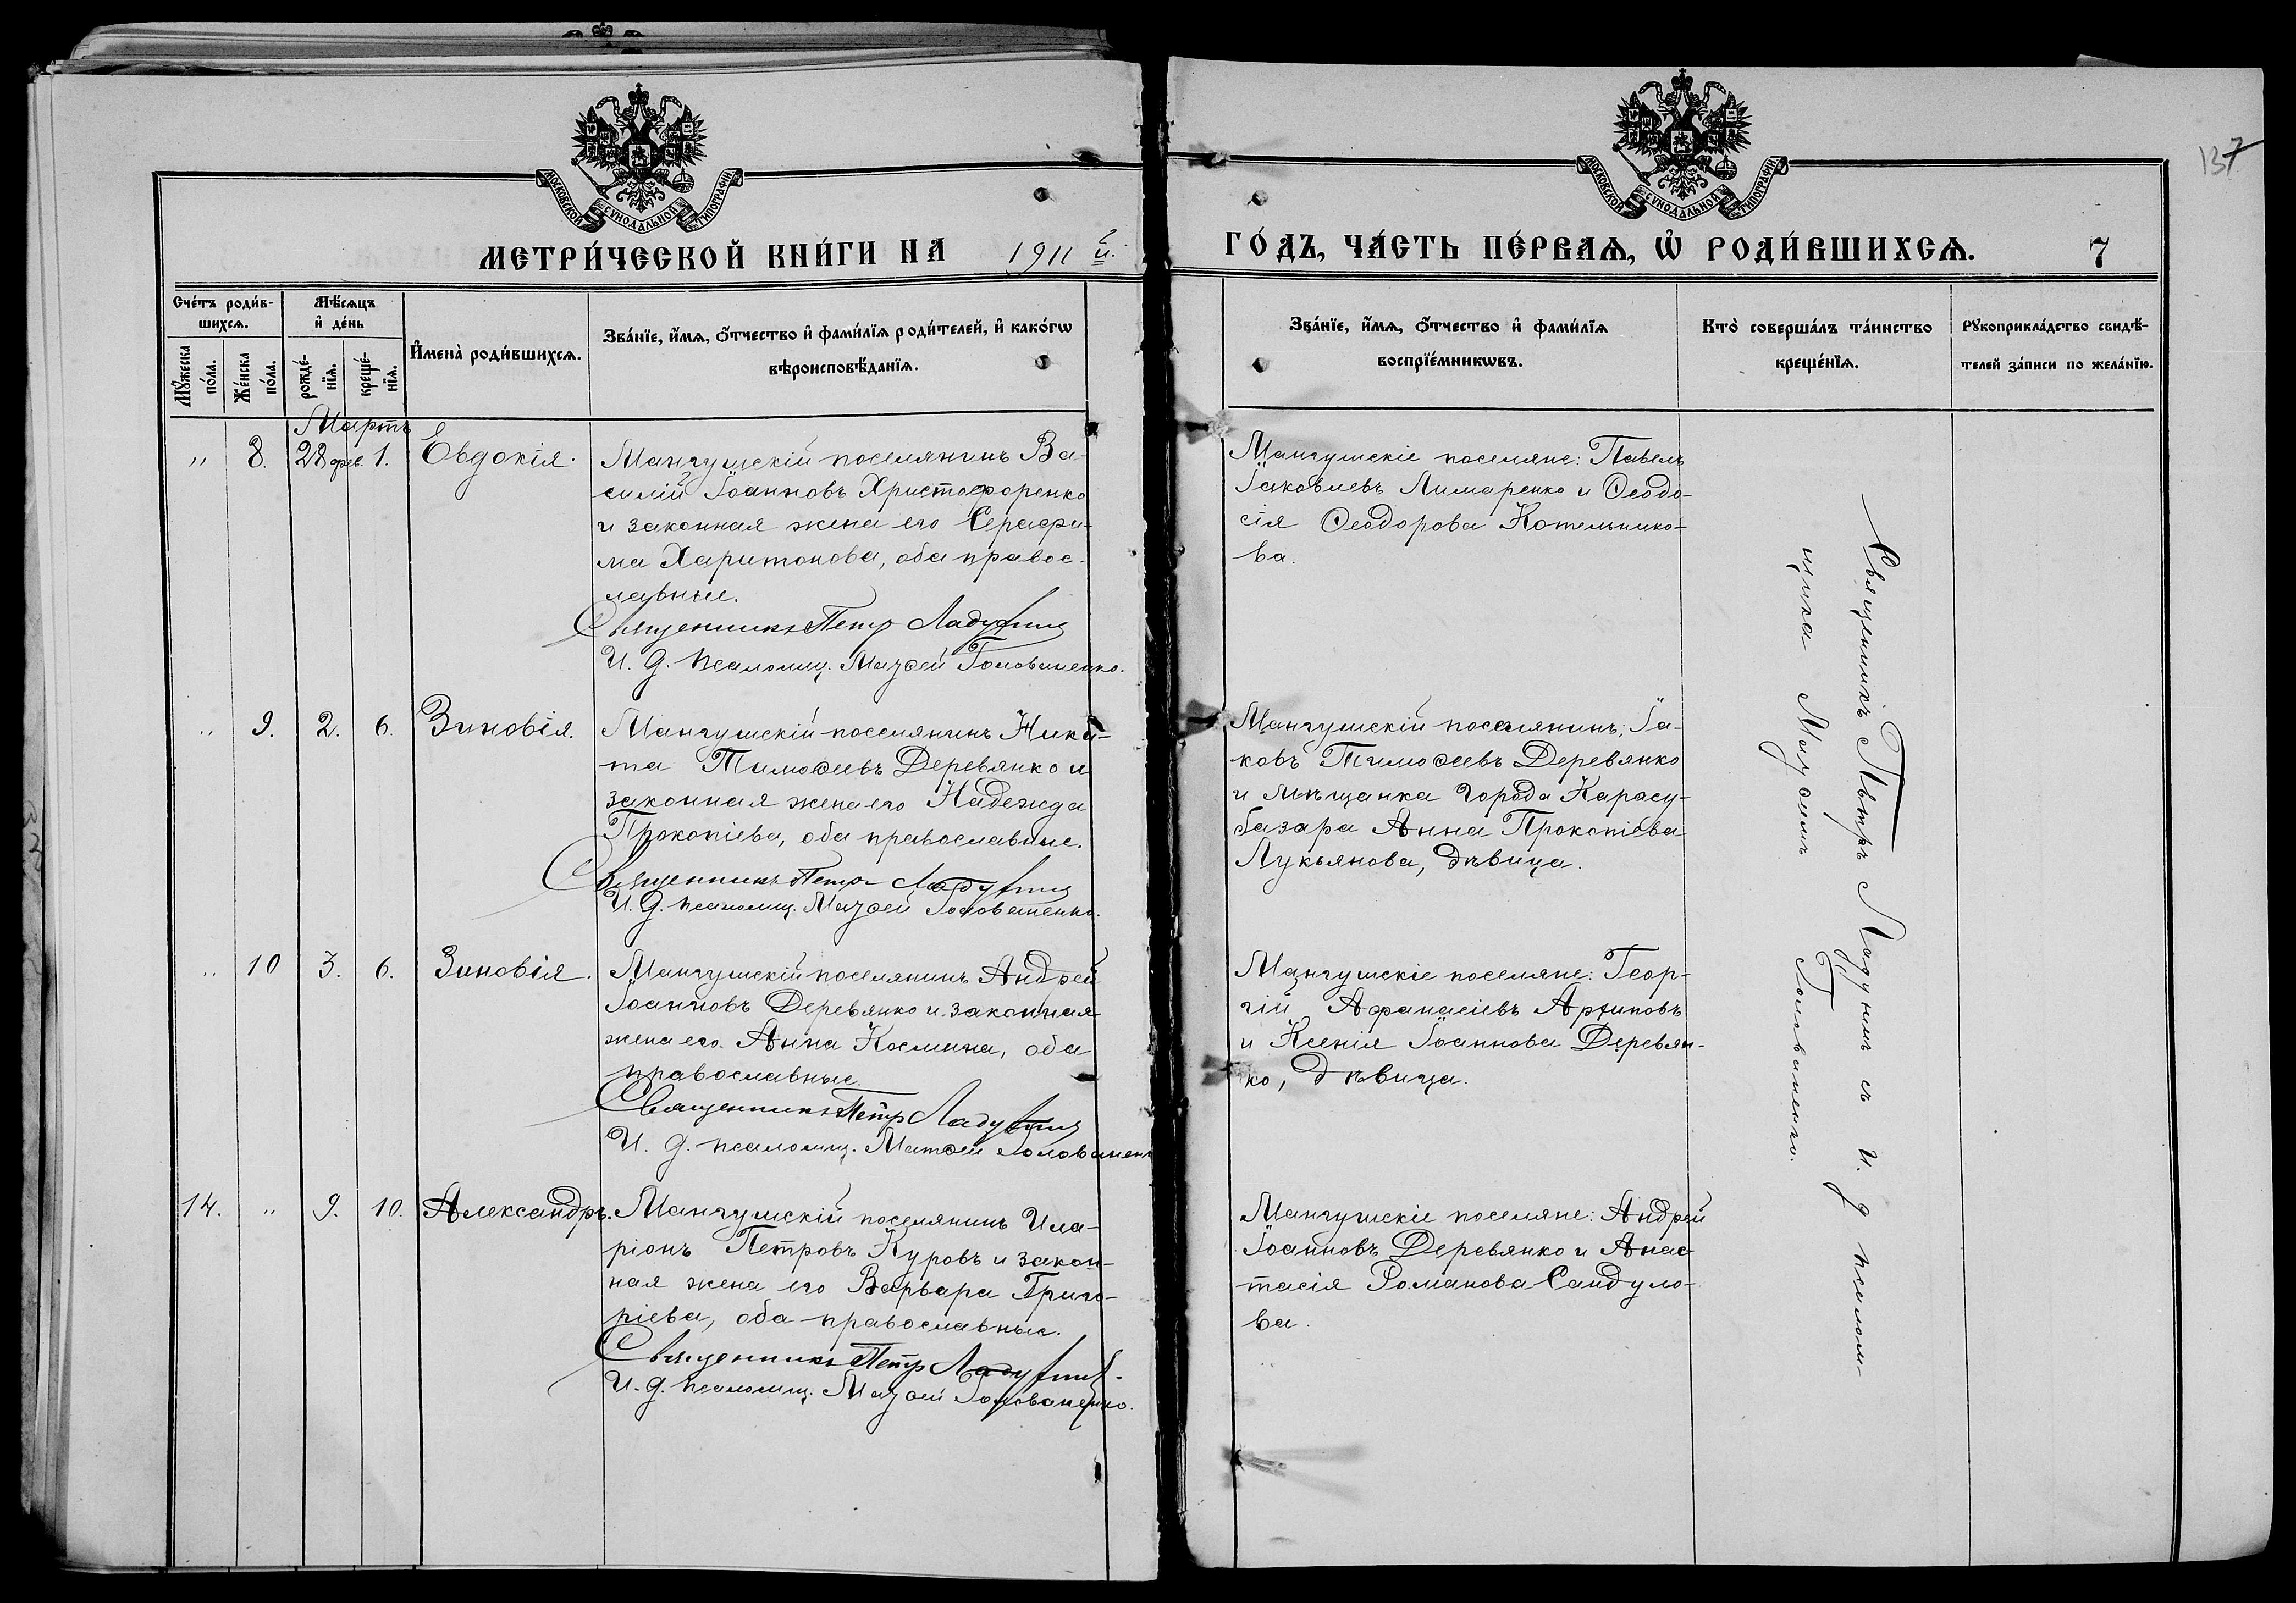 137
МОСКОВСКОЙ СѴНОДАЛЬНОЙ ТИПОГРАФІИ
МОСКОВСКОЙ СѴНОДАЛЬНОЙ ТИПОГРАФІИ
МЕТРИ́ЧЕСКОЙ КНИ́ГИ НА 1911 й. ГО́ДЪ, ЧА́СТЬ ПЕ́РВАѦ, Ѡ҆ РОДИ́ВШИХСѦ. 7
Сче́тъ роди́в-
шихсѧ.
Мꙋ́жеска
по́ла.
Же́нска
по́ла.
Мѣ́сѧцъ
и҆ де́нь
рожде́-
нїѧ.
креще́-
нїѧ.
И҆мена̀ роди́вшихсѧ.
Зва́нїе, и҆́мѧ, ѻ҆́тчество и҆ фами́лїѧ роди́телей, и҆ како́гѡ
вѣроисповѣ́данїѧ.
Зва́нїе, и҆́мѧ, ѻ҆́тчество и҆ фами́лїѧ
воспрїе́мникѡвъ.
Кто̀ соверша́лъ та́инство
креще́нїѧ.
Рꙋкоприкла́дство свидѣ́-
телей за́писи по жела́нїю.
Мартъ
" 8. 28 фев. 1. Евдокія.
Мангушскій поселянинъ Ва-
силій Іоанновъ Христофоренко
и законная жена его Серафи-
ма Харитонова, оба правос-
лавные.
Священникъ Петр Ладугин
И. д. псаломщ. Матѳей Голованенко.
Мангушскіе поселяне: Павелъ
Іаковлевъ Лимаренко и Ѳеодо-
сія Ѳеодорова Котельнико-
ва.
" 9. 2. 6. Зиновія.
Мангушскій поселянинъ Ники-
та Тимоѳеевъ Деревянко и
законная жена его Надежда
Прокопіева, оба православные.
Священникъ Петр Ладугин
И. д. псаломщ. Матѳей Голованенко.
Мангушскій поселянинъ: Іа-
ковъ Тимоѳеевъ Деревянко
и мѣщанка города Карасу-
базара Анна Прокопіева
Лукьянова, дѣвица.
" 10 3. 6. Зиновія.
Мангушскій поселянинъ Андрей
Іоанновъ Деревянко и законная
жена его Анна Космина, оба
православные.
Священникъ Петр Ладугин
И. д. псаломщ. Матѳей Голованен
Мангушскіе поселяне: Геор-
гій Аѳанасіевъ Архиповъ
и Ксенія Іоаннова Деревян-
ко, дѣвица.
14. " 9. 10. Александръ.
Мангушскій поселянинъ Ила-
ріонъ Петровъ Куровъ и закон-
ная жена его Варвара Григо-
ріева, оба православные.
Священникъ Петр Ладугин
И. д. псаломщ. Матѳей Голованенко.
Мангушскіе поселяне: Андрей
Іоанновъ Деревянко и Анас-
тасія Романова Сандуло-
ва.
Священникъ Петръ Ладугинъ съ и. д псалом-
щика Матѳеемъ Голованенко.